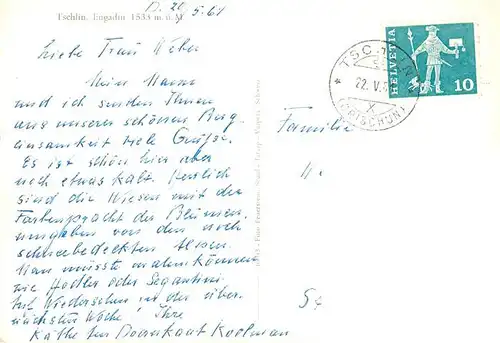 Tschlin. Engadin 1533 m ü. M.
D. 20/5.61
Liebe Frau Weber
Mein Mann
und ich senden Ihnen
aus unserer schönen Berg-
einsamkeit viele Grüße.
Es ist schön hier aber
noch etwas kalt. Herrlich
sind die Wiesen mit der
Farbenpracht der Blumen,
umgeben von den noch
schneebedeckten Alpen.
Man müsste malen können
wie Hodler oder Segantini
Auf Wiedersehen in der über-
nächsten Woche, Ihre
Käthe
HELVETIA
10
TSCHLIN
22. V. 6
X
Familie
W.
5c